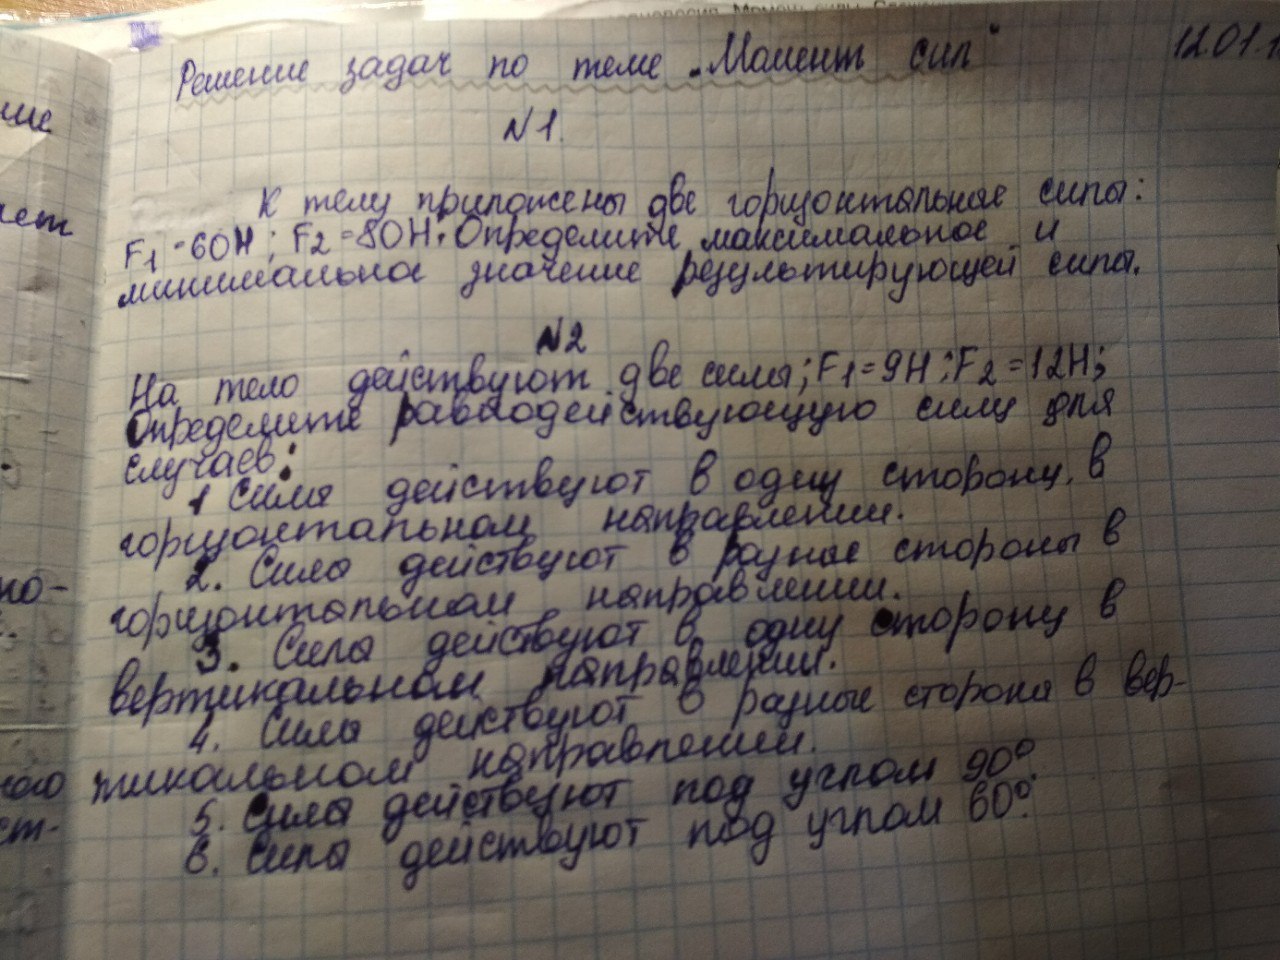 Решение задач по теме "Момент сил"
12.01.
N1.
К телу приложены две горизонтальные силы:
F1=60Н; F2=80Н. Определите максимальное и
минимальное значение результирующей силы.
N2
На тело действуют две силы; F1=9Н; F2=12Н;
Определите равнодействующую силу для
случаев:
1 Силы действуют в одну сторону, в
горизонтальном направлении.
2. Силы действуют в разные стороны в
горизонтальном направлении.
3. Силы действуют в одну сторону в
вертикальном направлении.
4. Силы действуют в разные стороны в вер-
тикальном направлении.
5. Силы действуют под углом 90°
6. Силы действуют под углом 60°.